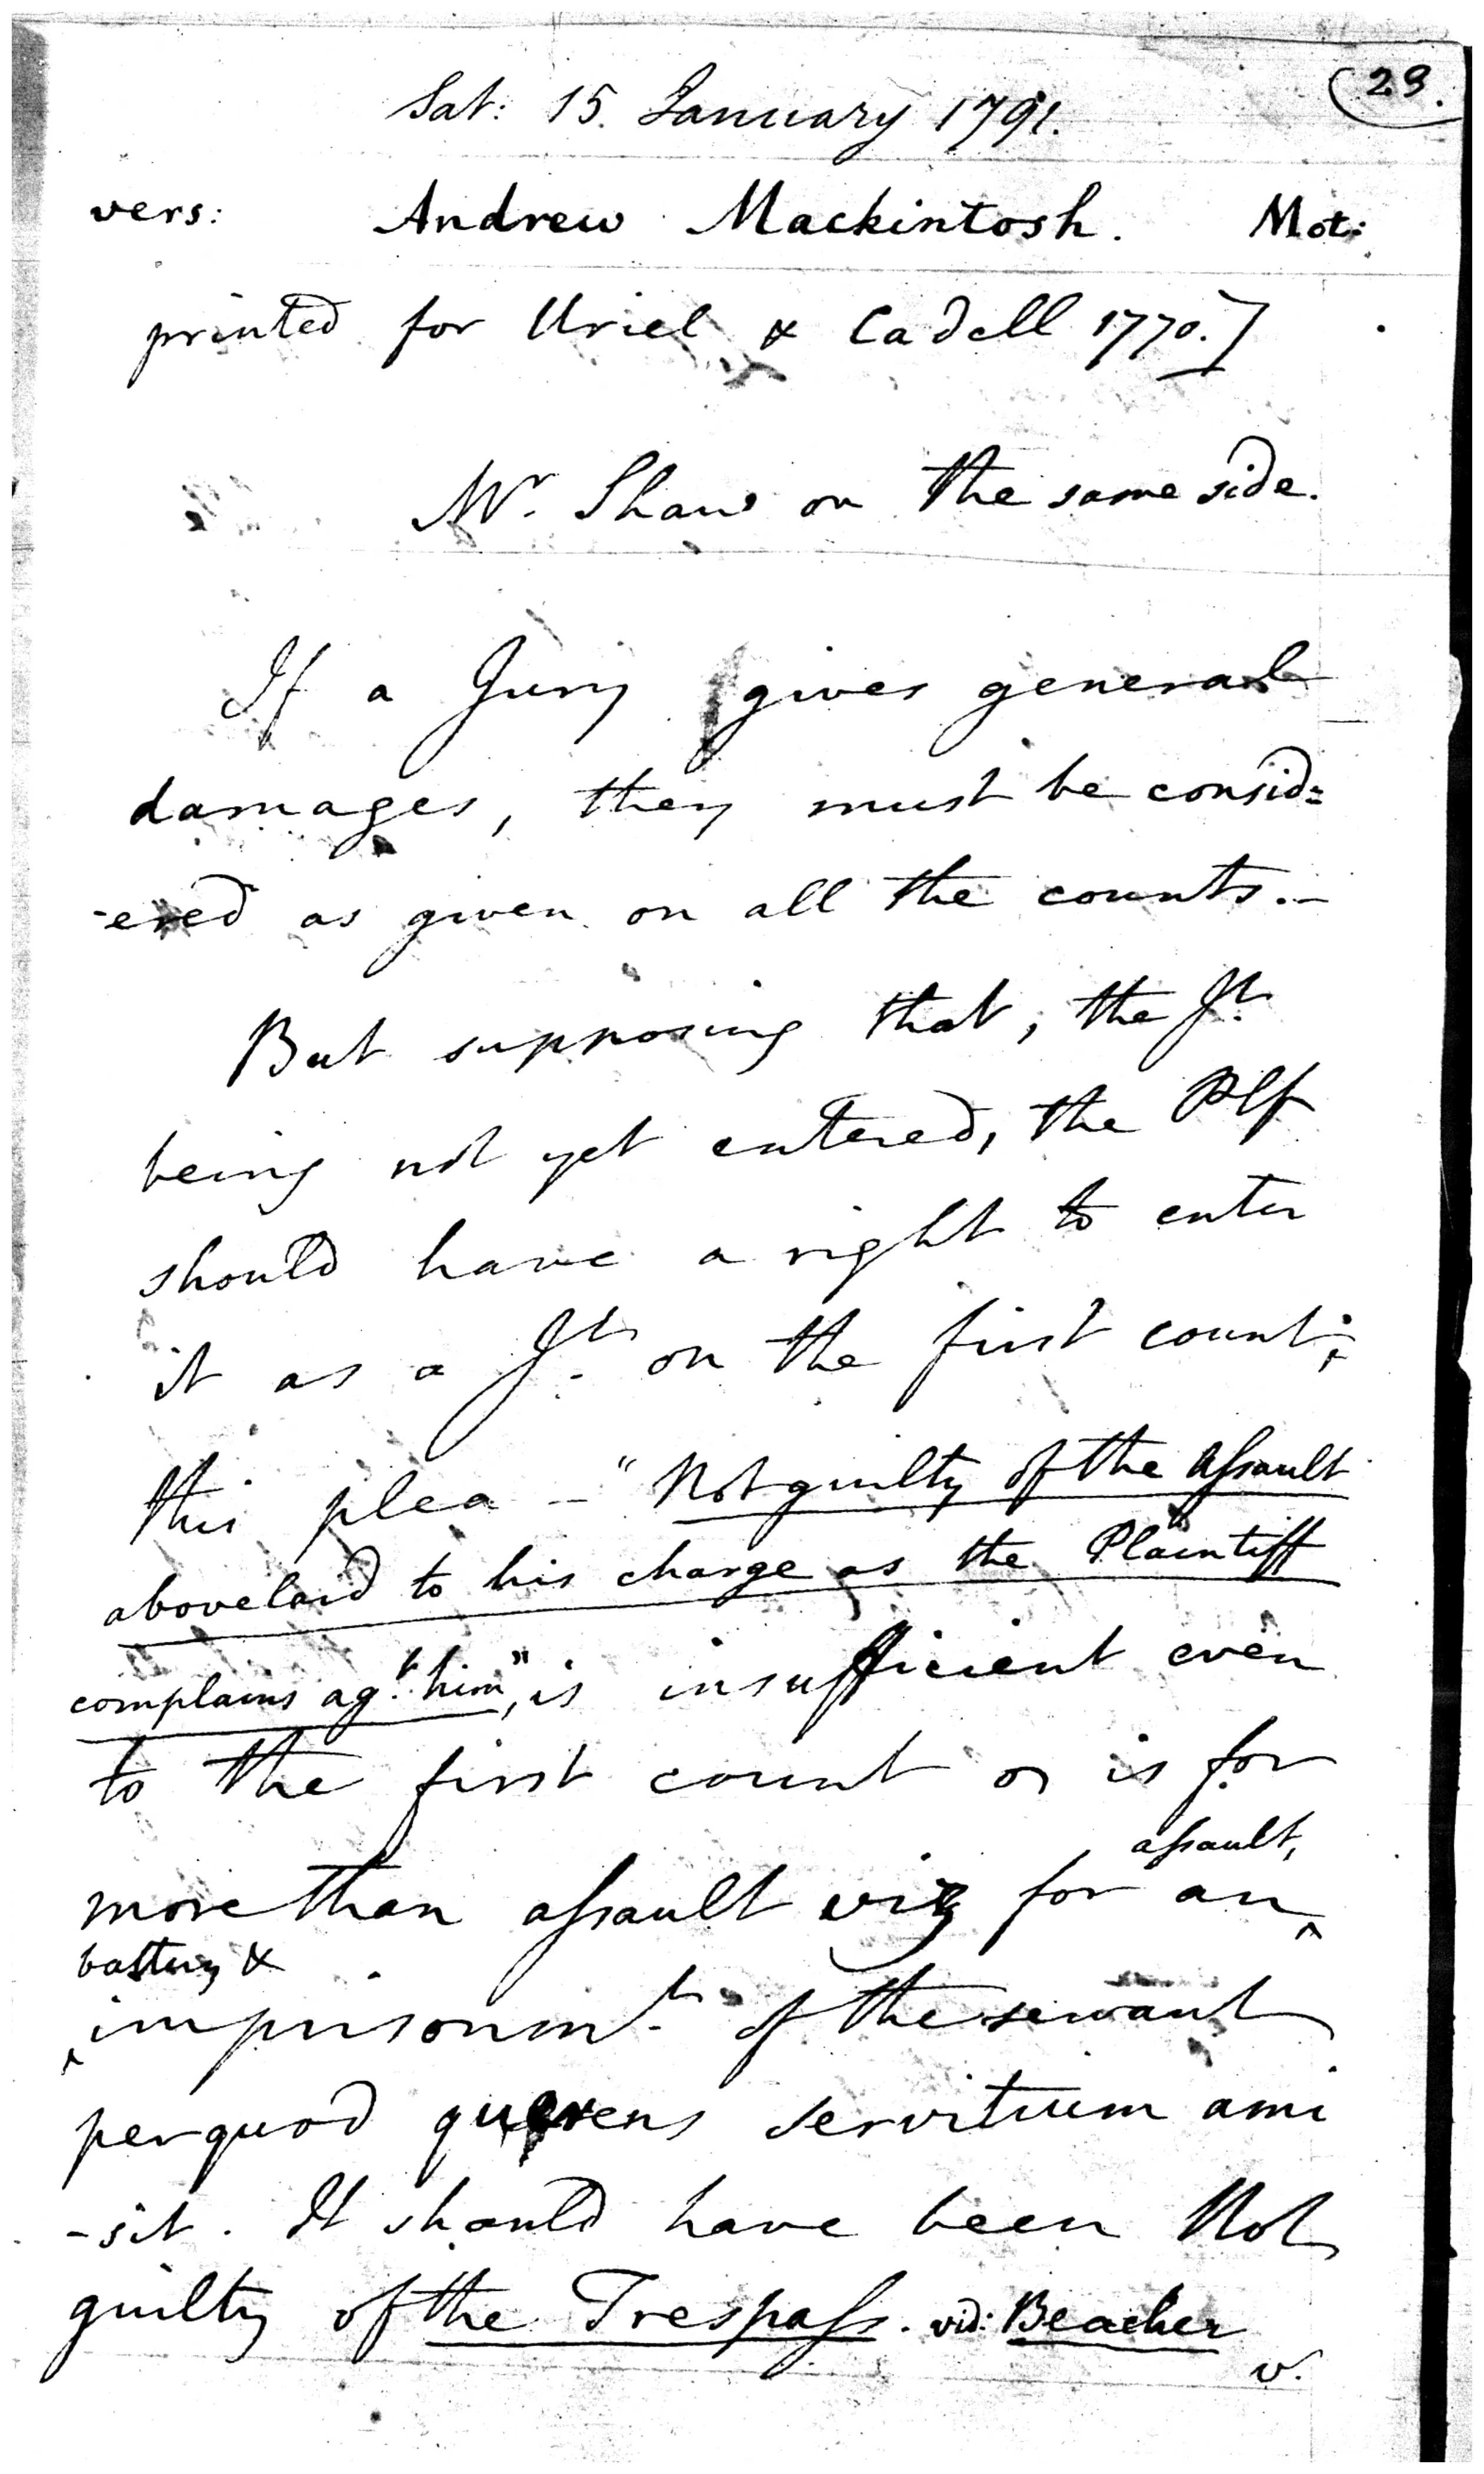 29.
Sat: 15. January 1791.
vers: Andrew Mackintosh. Mot:
printed for Uriel & Cadell 1770.]
Mr. Shaw on the same side.
If a Jury gives general
damages, they must be consid=
-ered as given on all the counts.-
But supposing that, the Jt.
being not yet entered, the Plf
should have a right to enter
it as a Jt. on the first count;
this plea - "Not guilty of the assault
above laid to his charge as the Plaintiff
complains agt. him", is insufficient even
to the first count as is for
more than assault viz for an
assault,
battery &
imprisonmt. of the servant
per quod querens servitium ami
-sit. It should have been Not
guilty of the Trespass. vid: Beacher
v.